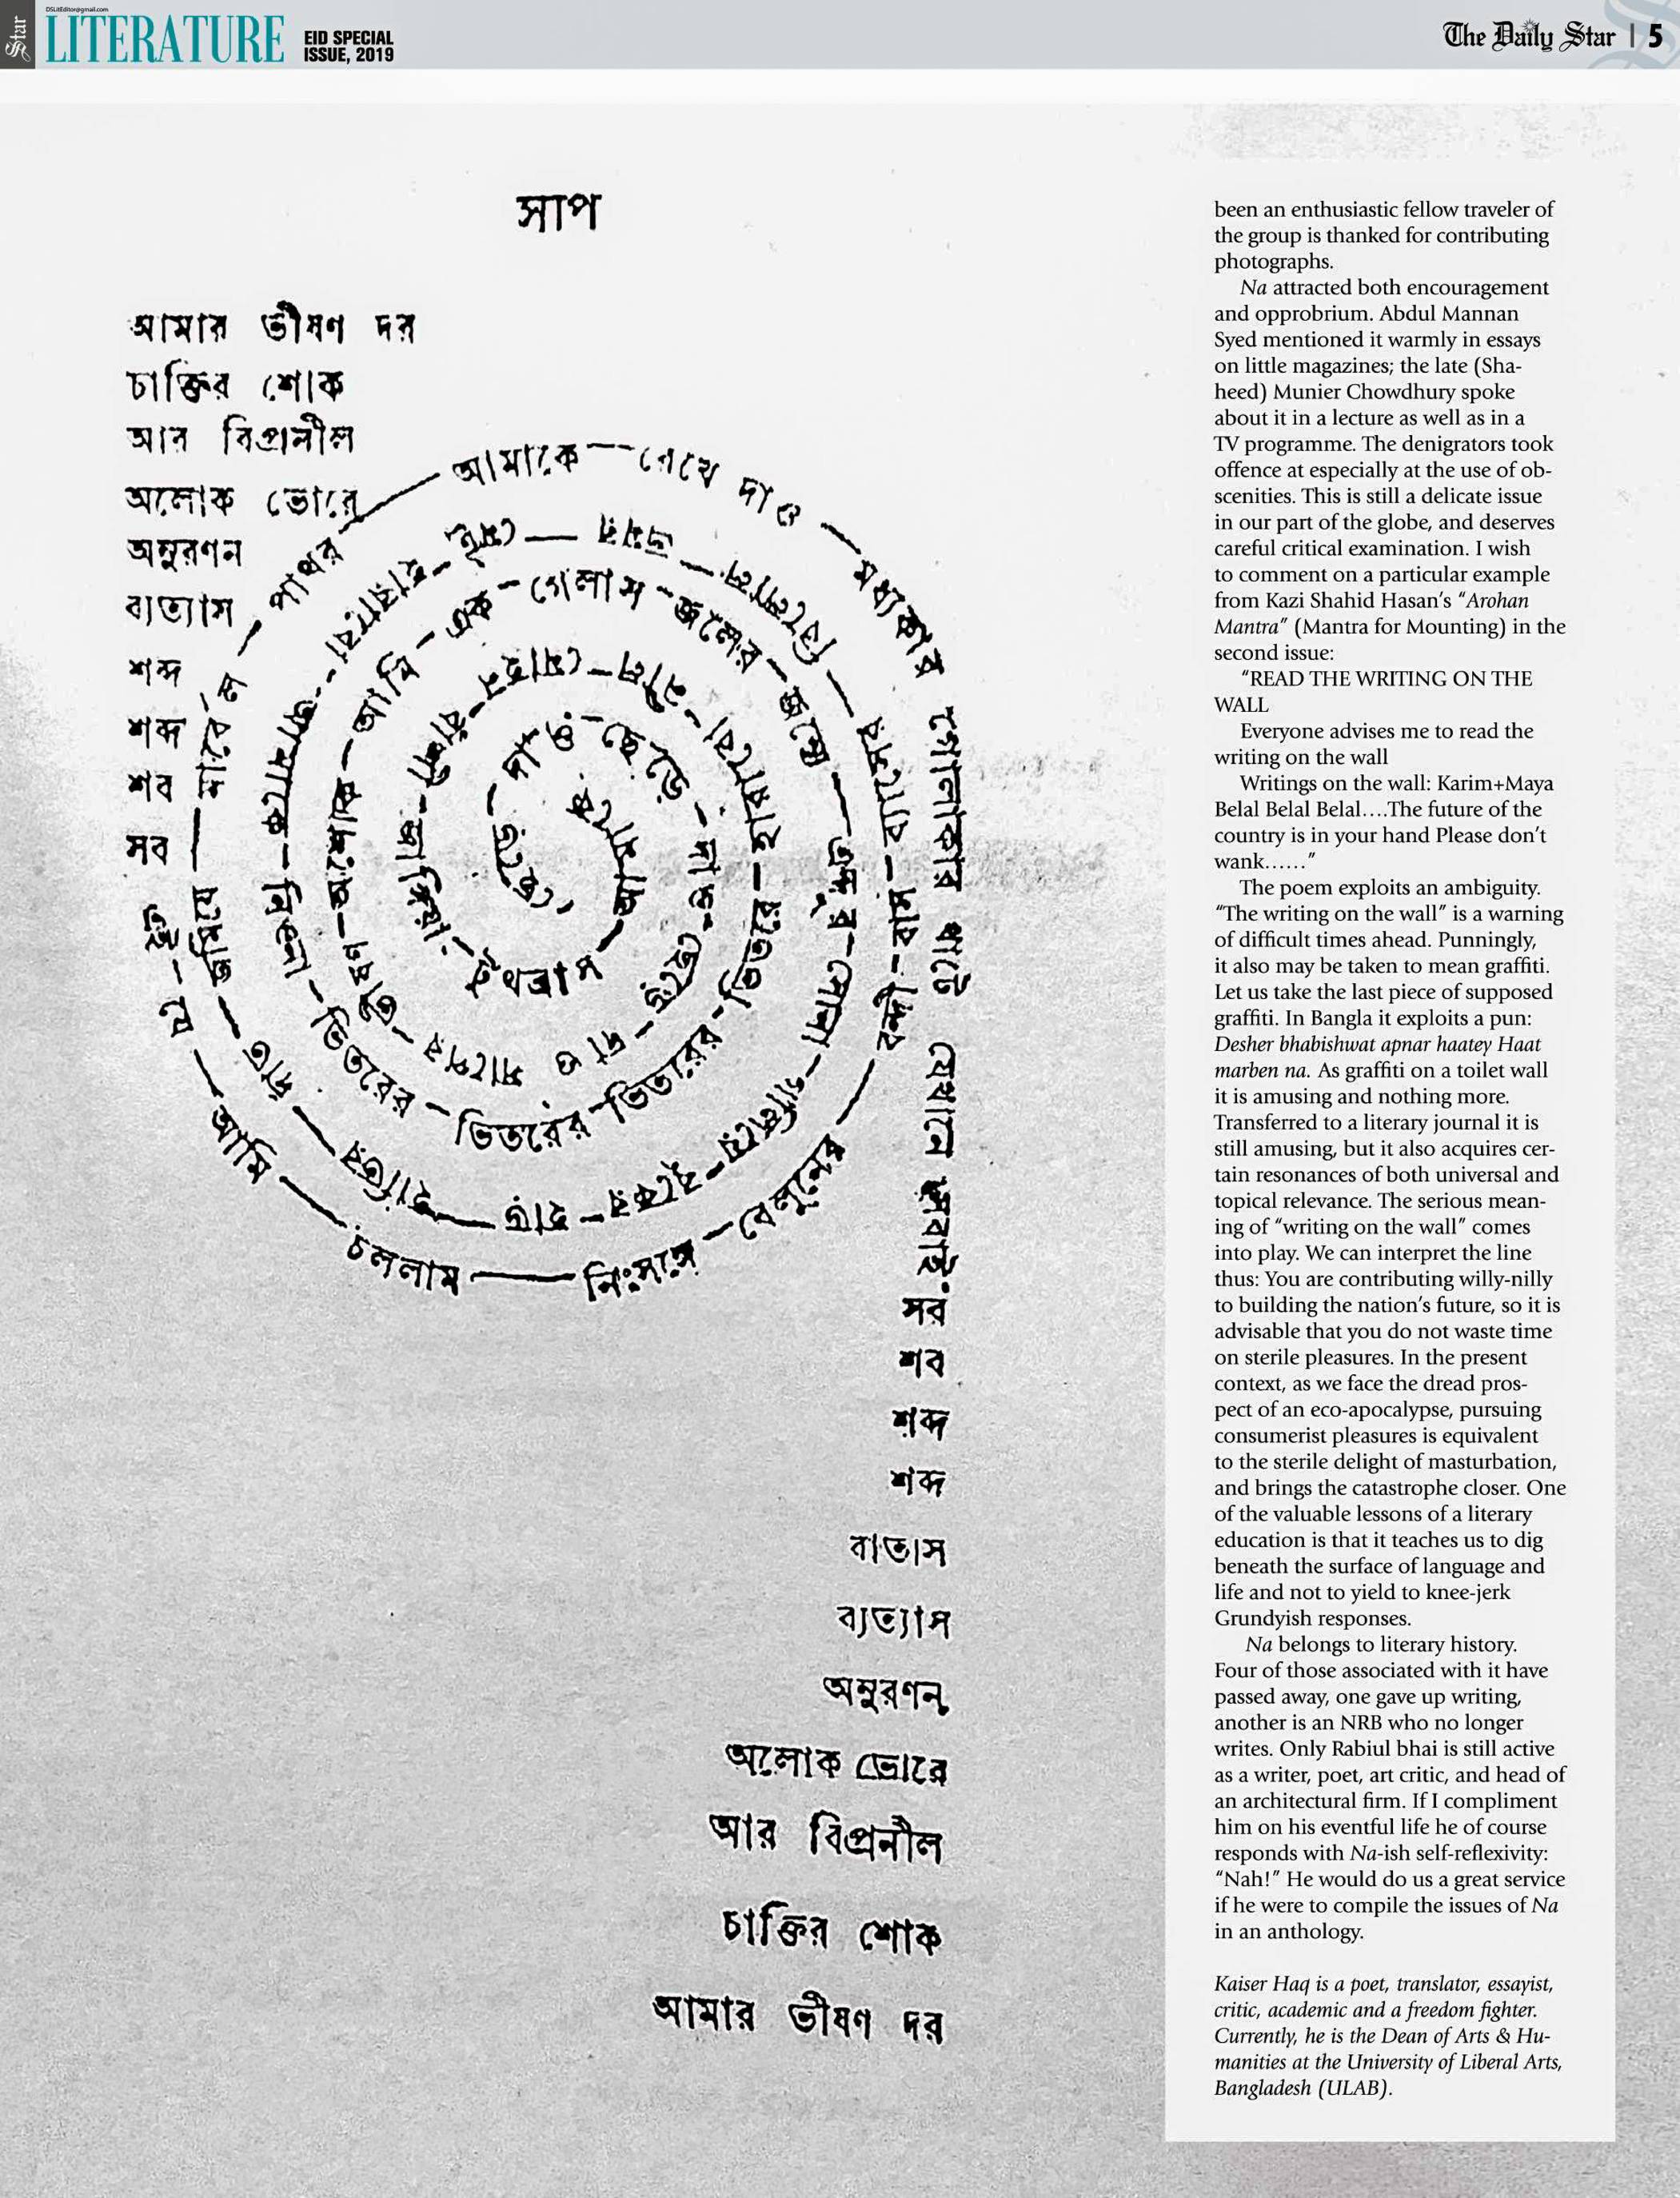 DSLitEditor@gmail.com
Star
LITERATURE
EID SPECIAL
ISSUE, 2019
The Daily Star | 5
সাপ
আমার ভীষণ দর
চাক্তির শোক
আর বিপ্রনীল
অলোক ভোরে
অনুরণন
ব্যত্যাস
শব্দ
শব্দ
শব
সব
এই — যে — আমি — চললাম — নিঃসঙ্গে
পাথর — আমাকে — রেখে দাও — মধ্যকার গোলাকার খাটে যেখানে সবাই
আমি — এক — গেলাস — জলের
ভিতরের — ভিতরের — ভিতরের
সব
শব
শব্দ
শব্দ
বাতাস
ব্যত্যাস
অনুরণন
অলোক ভোরে
আর বিপ্রনীল
চাক্তির শোক
আমার ভীষণ দর
been an enthusiastic fellow traveler of
the group is thanked for contributing
photographs.
Na attracted both encouragement
and opprobrium. Abdul Mannan
Syed mentioned it warmly in essays
on little magazines; the late (Sha-
heed) Munier Chowdhury spoke
about it in a lecture as well as in a
TV programme. The denigrators took
offence at especially at the use of ob-
scenities. This is still a delicate issue
in our part of the globe, and deserves
careful critical examination. I wish
to comment on a particular example
from Kazi Shahid Hasan's “Arohan
Mantra” (Mantra for Mounting) in the
second issue:
“READ THE WRITING ON THE
WALL
Everyone advises me to read the
writing on the wall
Writings on the wall: Karim+Maya
Belal Belal Belal….The future of the
country is in your hand Please don't
wank……”
The poem exploits an ambiguity.
“The writing on the wall” is a warning
of difficult times ahead. Punningly,
it also may be taken to mean graffiti.
Let us take the last piece of supposed
graffiti. In Bangla it exploits a pun:
Desher bhabishwat apnar haatey Haat
marben na. As graffiti on a toilet wall
it is amusing and nothing more.
Transferred to a literary journal it is
still amusing, but it also acquires cer-
tain resonances of both universal and
topical relevance. The serious mean-
ing of “writing on the wall” comes
into play. We can interpret the line
thus: You are contributing willy-nilly
to building the nation's future, so it is
advisable that you do not waste time
on sterile pleasures. In the present
context, as we face the dread pros-
pect of an eco-apocalypse, pursuing
consumerist pleasures is equivalent
to the sterile delight of masturbation,
and brings the catastrophe closer. One
of the valuable lessons of a literary
education is that it teaches us to dig
beneath the surface of language and
life and not to yield to knee-jerk
Grundyish responses.
Na belongs to literary history.
Four of those associated with it have
passed away, one gave up writing,
another is an NRB who no longer
writes. Only Rabiul bhai is still active
as a writer, poet, art critic, and head of
an architectural firm. If I compliment
him on his eventful life he of course
responds with Na-ish self-reflexivity:
“Nah!” He would do us a great service
if he were to compile the issues of Na
in an anthology.
Kaiser Haq is a poet, translator, essayist,
critic, academic and a freedom fighter.
Currently, he is the Dean of Arts & Hu-
manities at the University of Liberal Arts,
Bangladesh (ULAB).